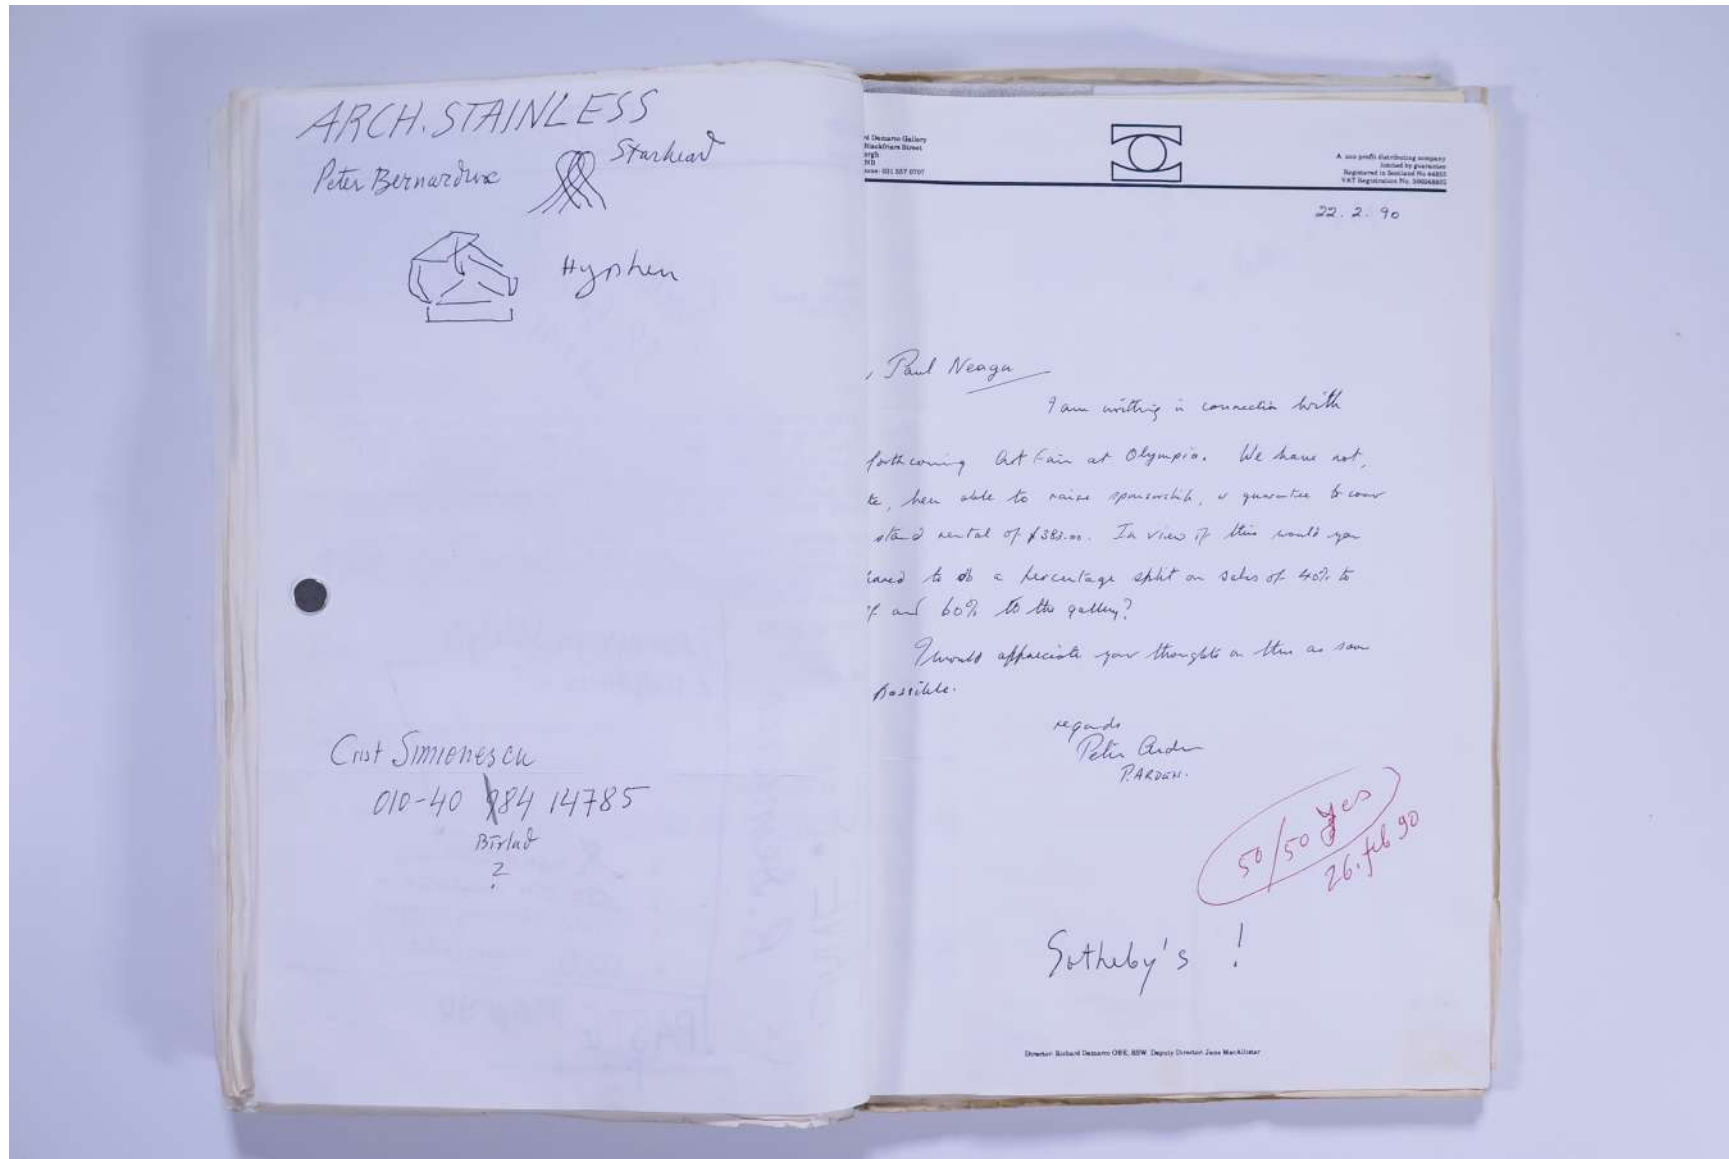 ARCH. STAINLESS
Peter
Starhead
Hyphen
Crist Simionescu
010-40 984 14785
Bîrlad
?
d Demarco Gallery
Blackfriars Street
rgh
one: 031 557 0707
A non profit distributing company
limited by guarantee
Registered in Scotland No
VAT Registration No.
22. 2. 90
, Paul Neagu
I am writing in connection with
forthcoming Art Fair at Olympia. We have not,
te, been able to raise sponsorship, or guarantee to cover
stand rental of In view of this would you
pared to do a percentage split on sales of 40% to
f and 60% to the gallery?
I would appreciate your thoughts on this as soon
possible.
regards
Peter Arden
P. ARDEN.
50/50 yes
26. feb 90
Sotheby's !
Director: Richard Demarco OBE, RSW Deputy Director Jane MacAllister